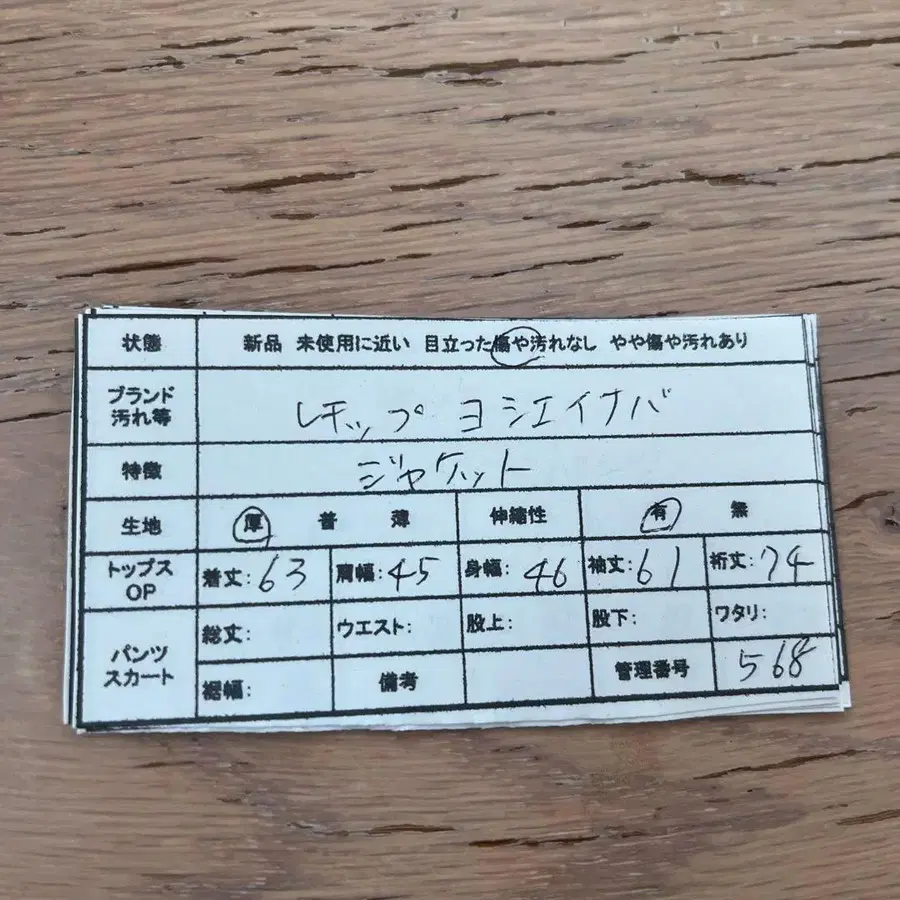 状態 新品 未使用に近い 目立った傷や汚れなし やや傷や汚れあり
ブランド
汚れ等
レチップ ヨシエイナバ
特徴 ジャケット
生地 厚 普 薄 伸縮性 有 無
トップス
OP
着丈:63 肩幅:45 身幅:46 袖丈:61 裄丈:74
パンツ
スカート
総丈: ウエスト: 股上: 股下: ワタリ:
裾幅: 備考 管理番号 568